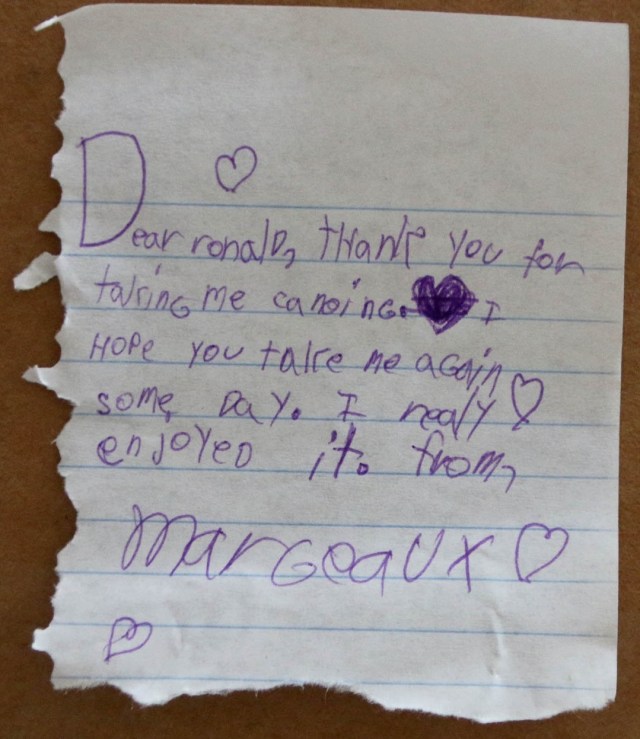 Dear ronalD, thank you for
taking me canoing. I
HOPE you take me again
some DaY. I realy
enjoyeD it. from,
Margeaux